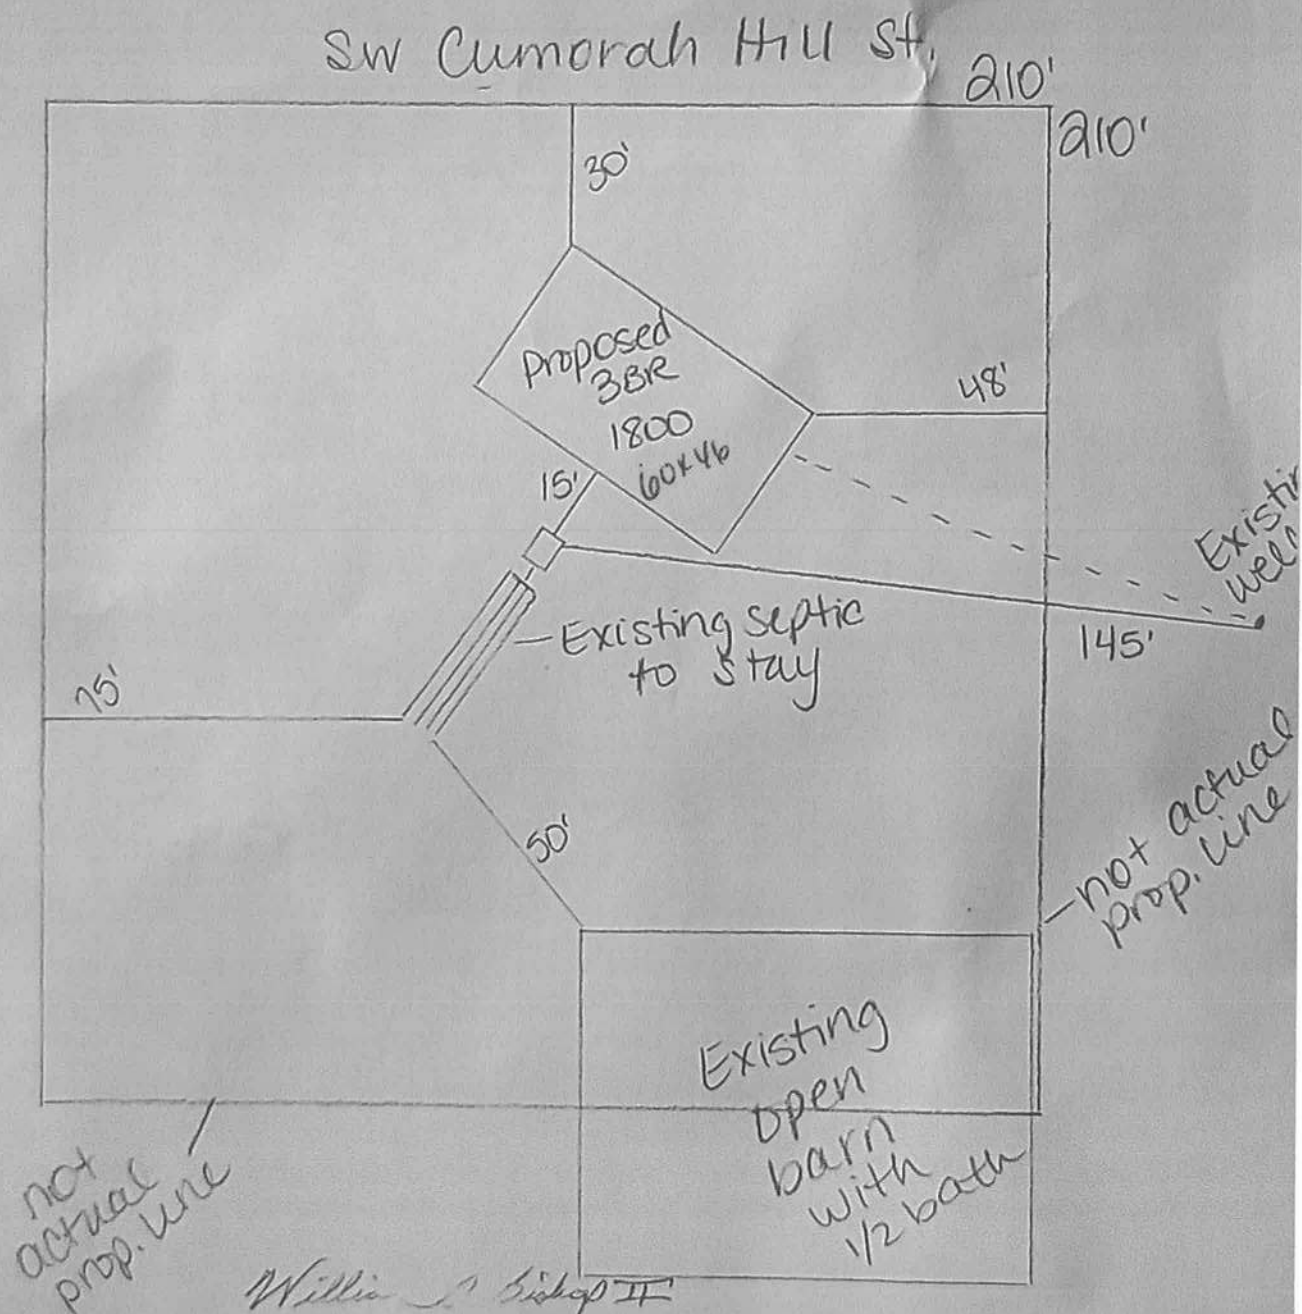 SW Cumorah Hill St.
210'
210'
30'
Proposed
3BR
1800
60x46
48'
15'
Existing septic
to stay
145'
75'
50'
not actual
prop. line
Existing
open
barn
with
1/2 bath
not
actual
prop. line
Bishop II